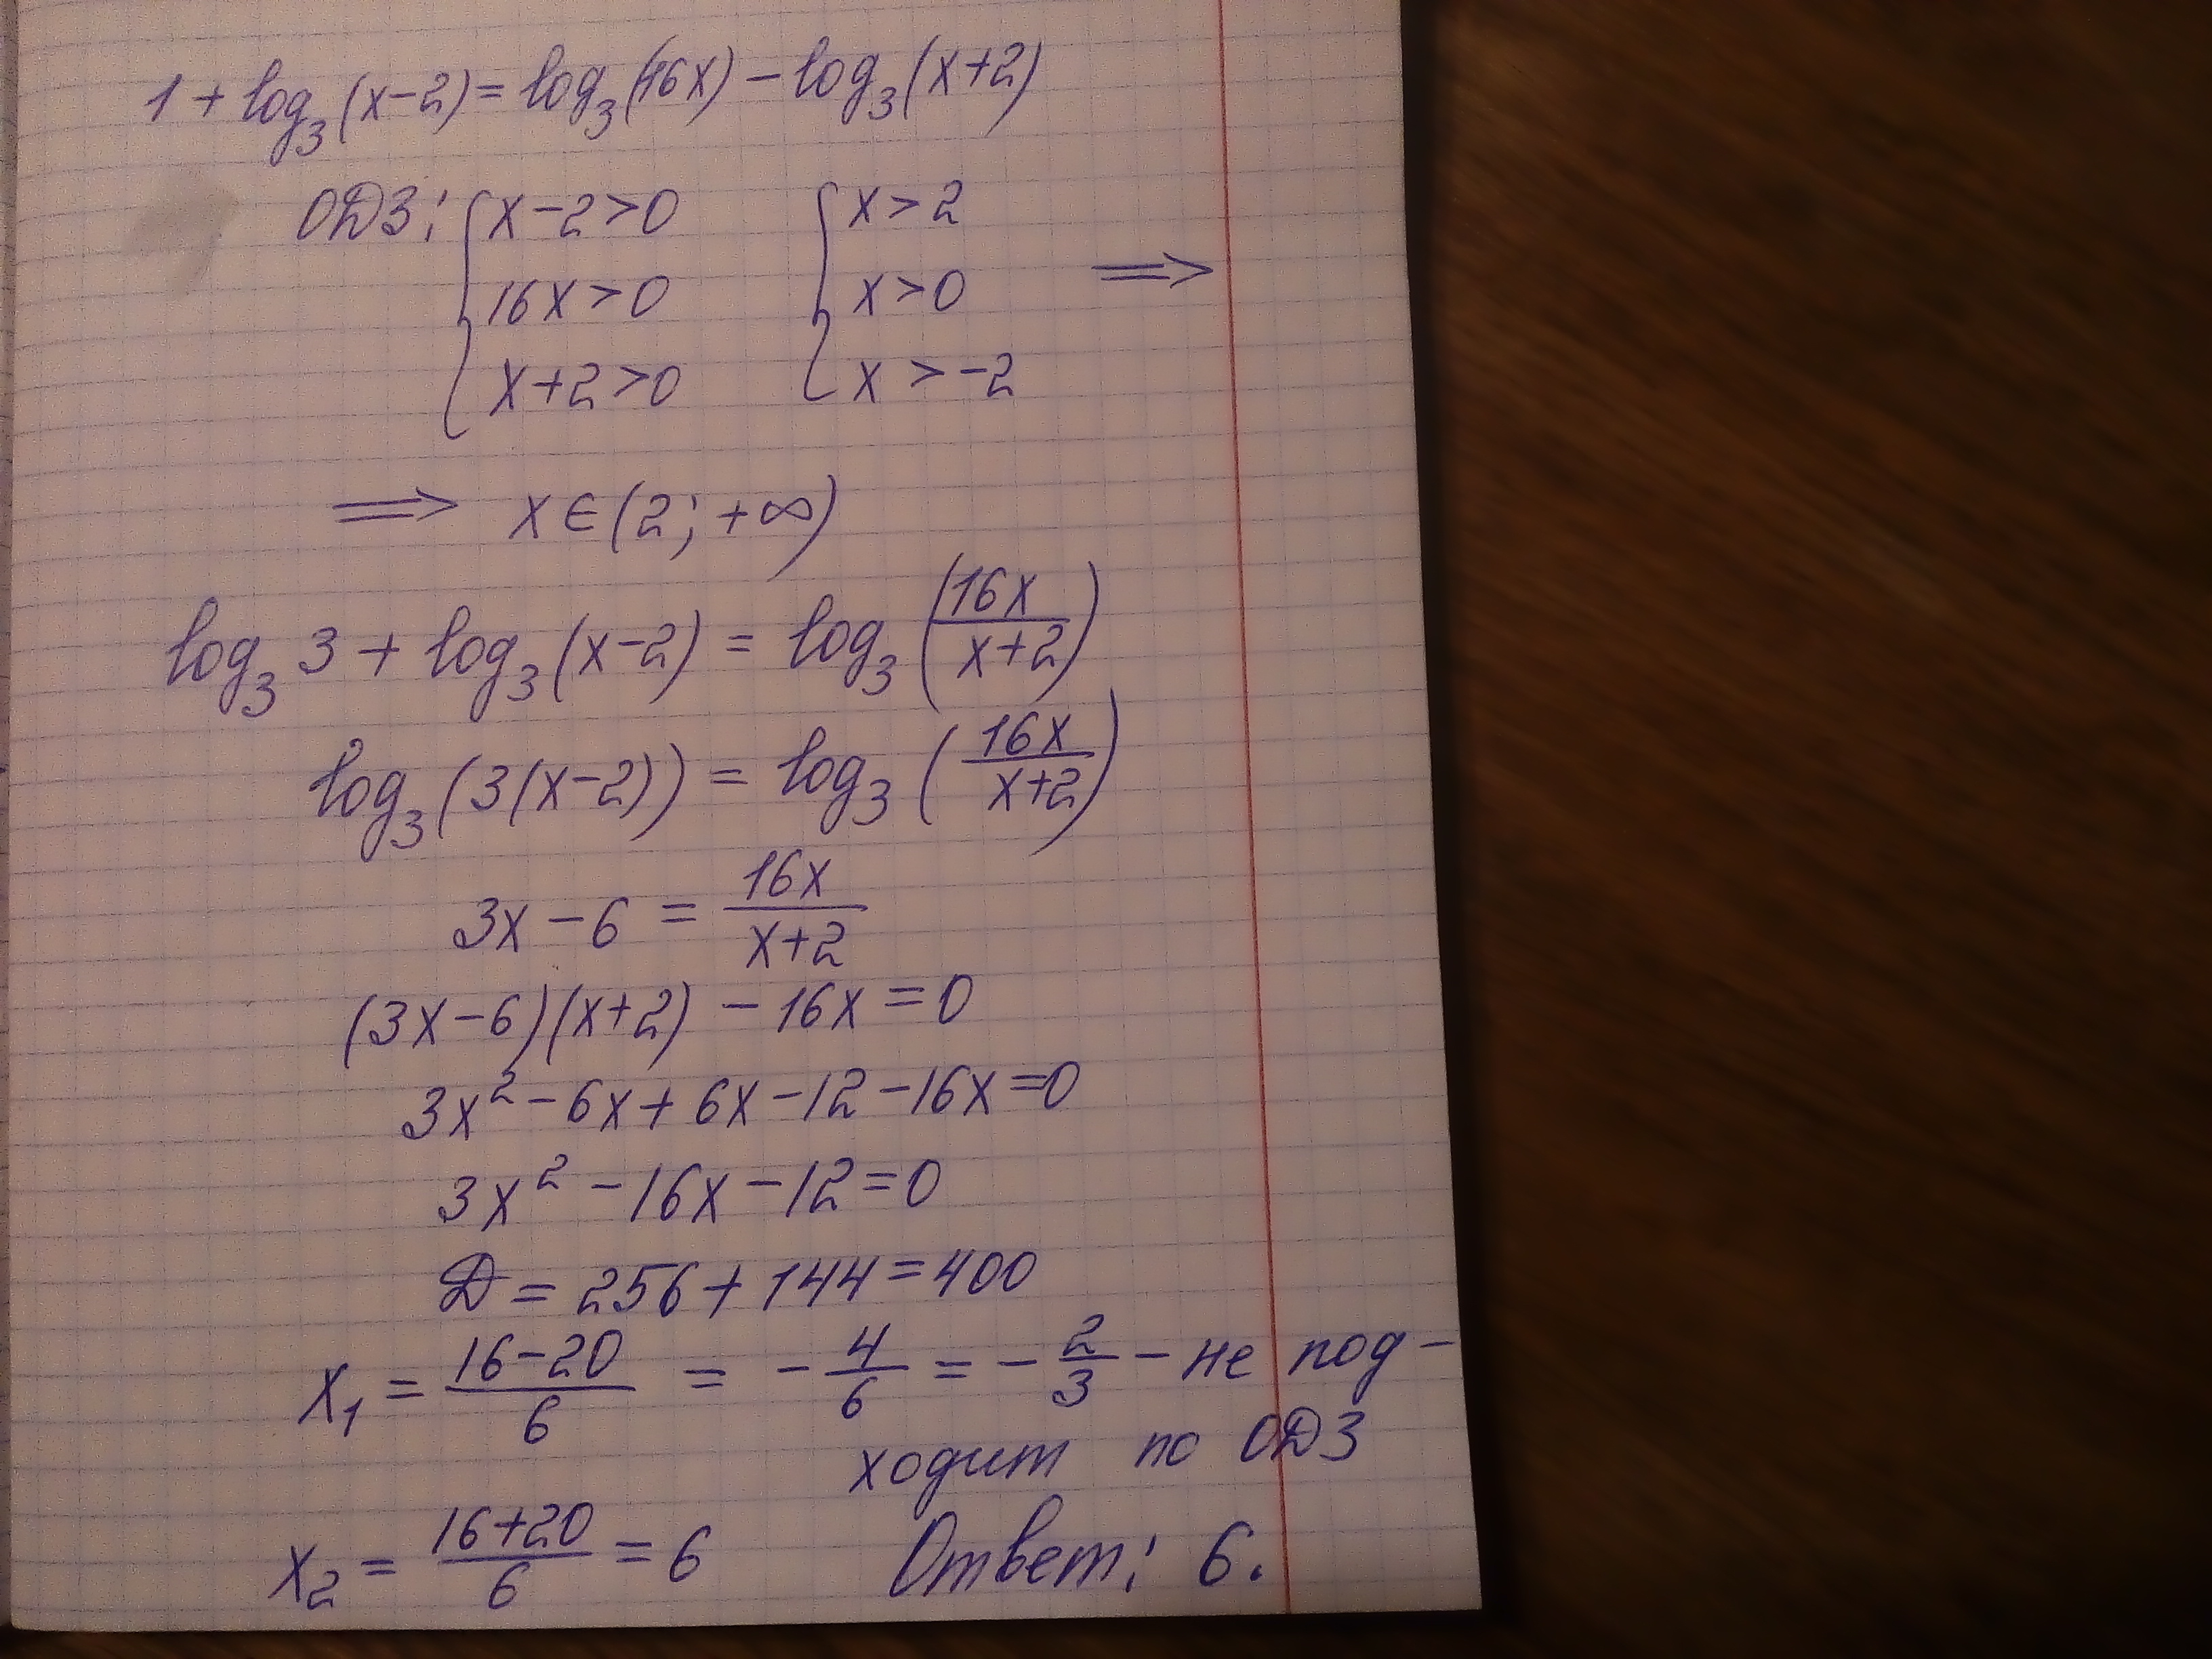 1 + log₃(x-2) = log₃(16x) - log₃(x+2)
ОДЗ: { x-2>0 { x>2
16x>0 x>0 ⟹
x+2>0 x>-2
⟹ x∈(2; +∞)
log₃ 3 + log₃(x-2) = log₃(16x/(x+2))
log₃(3(x-2)) = log₃(16x/(x+2))
3x - 6 = 16x/(x+2)
(3x-6)(x+2) - 16x = 0
3x² - 6x + 6x - 12 - 16x = 0
3x² - 16x - 12 = 0
D = 256 + 144 = 400
x₁ = (16-20)/6 = -4/6 = -2/3 - не под-
ходит по ОДЗ
x₂ = (16+20)/6 = 6 Ответ: 6.